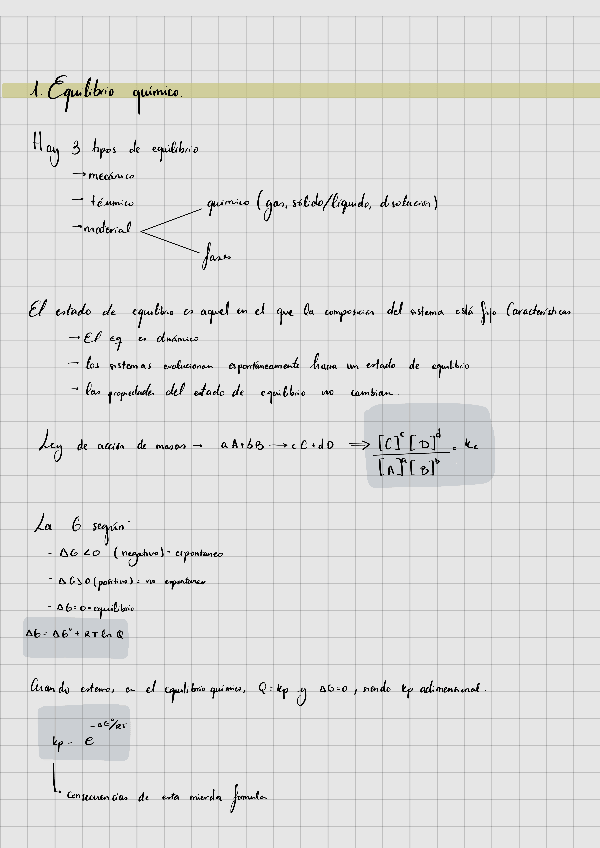 1. Equilibrio químico.
Hay 3 tipos de equilibrio
→ mecánico
→ térmico
→ material
químico (gas, sólido/líquido, disolución)
fases
El estado de equilibrio es aquel en el que la composición del sistema está fijo Características
→ El eq es dinámico
→ los sistemas evolucionan espontáneamente hacia un estado de equilibrio
→ las propiedades del estado de equilibrio no cambian.
Ley de acción de masas → aA+bB → cC+dD ⇒ [C]^c [D]^d / [A]^a [B]^b = Kc
La G según:
- ΔG<0 (negativo) = espontáneo
- ΔG>0 (positivo) = no espontáneo
- ΔG=0 = equilibrio
ΔG = ΔG° + RT ln Q
Cuando estemos en el equilibrio químico, Q=Kp y ΔG=0, siendo Kp adimensional.
Kp = e^-ΔG°/RT
Consecuencias de esta mierda formula